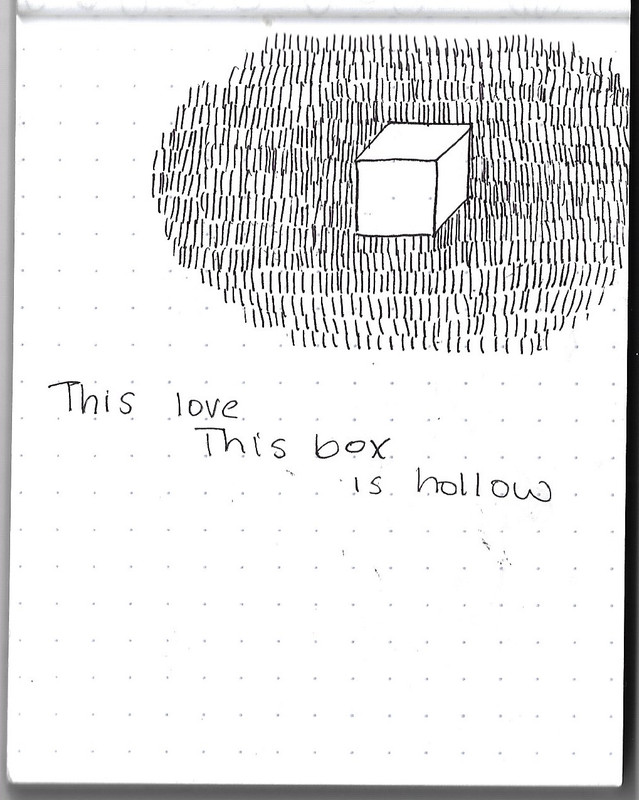 This love
This box
is hollow